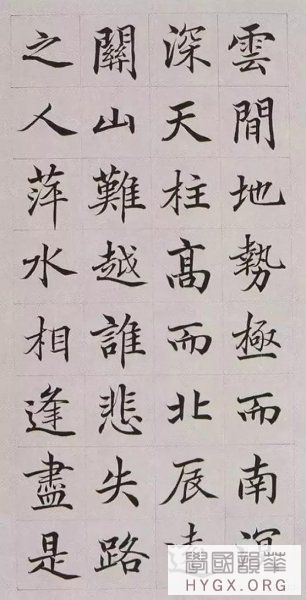 雲間地勢極而南
深天柱髙而北辰
關山難越誰悲失路
之人萍水相逢盡是
華韻國學
HYGX.ORG